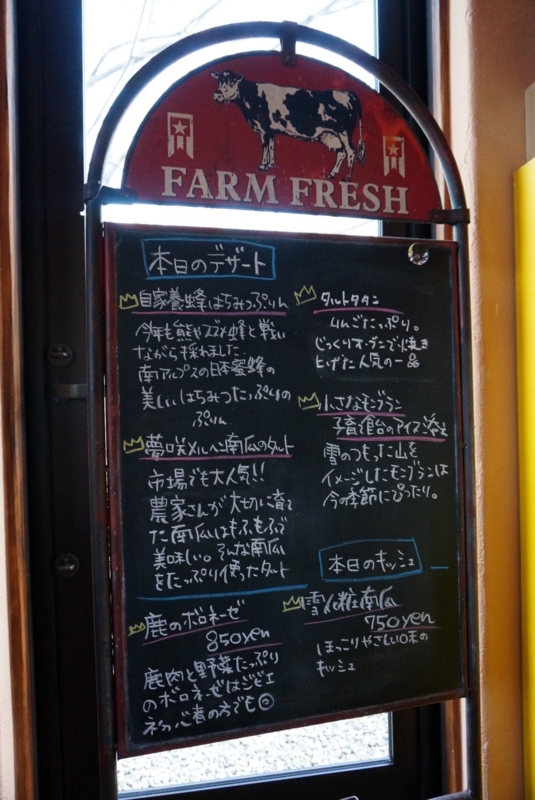 FARM FRESH
本日のデザート
自家養蜂はちみつぷりん
今年も熊やスズメ蜂と戦い
ながら採れました。
南アルプスの日本蜜蜂の
美しいはちみつたっぷりの
ぷりん
夢咲メルヘン南瓜のタルト
市場でも大人気!!
農家さんが大切に育て
た南瓜はもふもふ
美味しい。そんな南瓜
をたっぷり使ったタルト
鹿のボロネーゼ
850yen
鹿肉と野菜たっぷり
のボロネーゼはジビエ
初心者の方でも◎
タルトタタン
りんごたっぷり。
じっくりオーブンで焼き
上げた人気の一品
小さなモンブラン
子育て飴のアイス添え
雪のつもった山を
イメージしたモンブランは
今の季節にぴったり。
本日のキッシュ
雪化粧南瓜
750yen
ほっこりやさしい味の
キッシュ